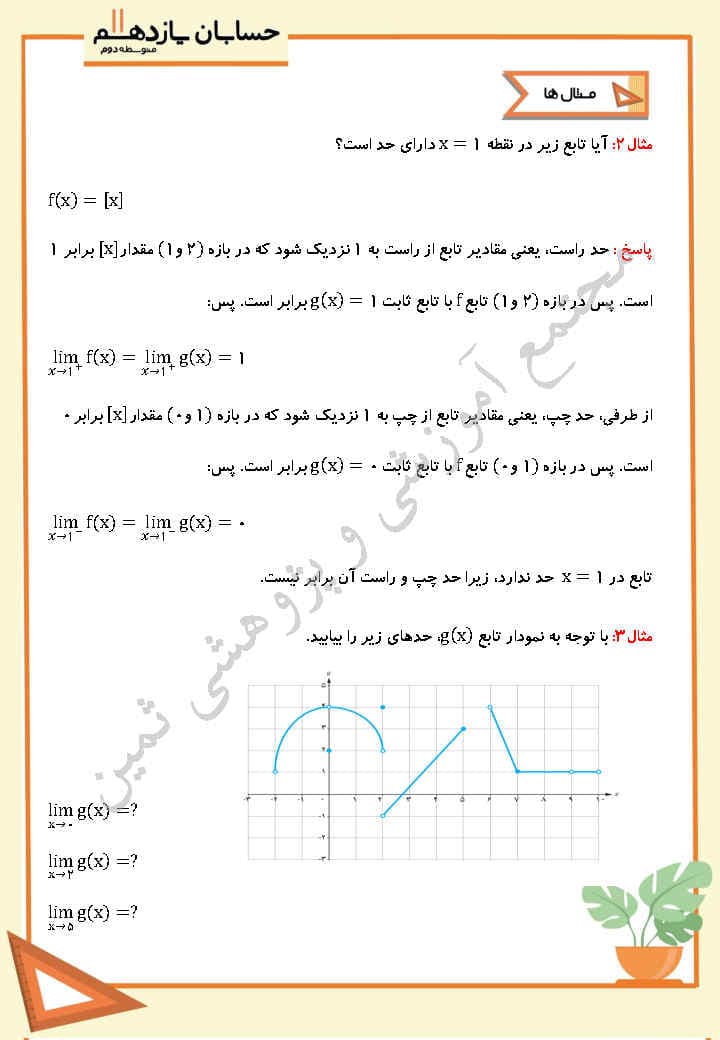 حسابان یازدهم
متوسطه دوم
مثال ها
مثال ۲: آیا تابع زیر در نقطه x = ۱ دارای حد است؟
f(x) = [x]
پاسخ : حد راست، یعنی مقادیر تابع از راست به ۱ نزدیک شود که در بازه (۲ و۱) مقدار [x] برابر ۱
است. پس در بازه (۲ و۱) تابع f با تابع ثابت g(x) = ۱ برابر است. پس:
lim x→۱⁺ f(x) = lim x→۱⁺ g(x) = ۱
از طرفی، حد چپ، یعنی مقادیر تابع از چپ به ۱ نزدیک شود که در بازه (۱ و۰) مقدار [x] برابر ۰
است. پس در بازه (۱ و۰) تابع f با تابع ثابت g(x) = ۰ برابر است. پس:
lim x→۱⁻ f(x) = lim x→۱⁻ g(x) = ۰
تابع در x = ۱ حد ندارد، زیرا حد چپ و راست آن برابر نیست.
مثال ۳: با توجه به نمودار تابع g(x)، حدهای زیر را بیابید.
y
۵
۴
۳
۲
۱
-۳ -۲ -۱ ۰ ۱ ۲ ۳ ۴ ۵ ۶ ۷ ۸ ۹ ۱۰ x
-۱
-۲
-۳
lim x→۰ g(x) =?
lim x→۲ g(x) =?
lim x→۵ g(x) =?
مجتمع آموزشی و پژوهشی ثمین